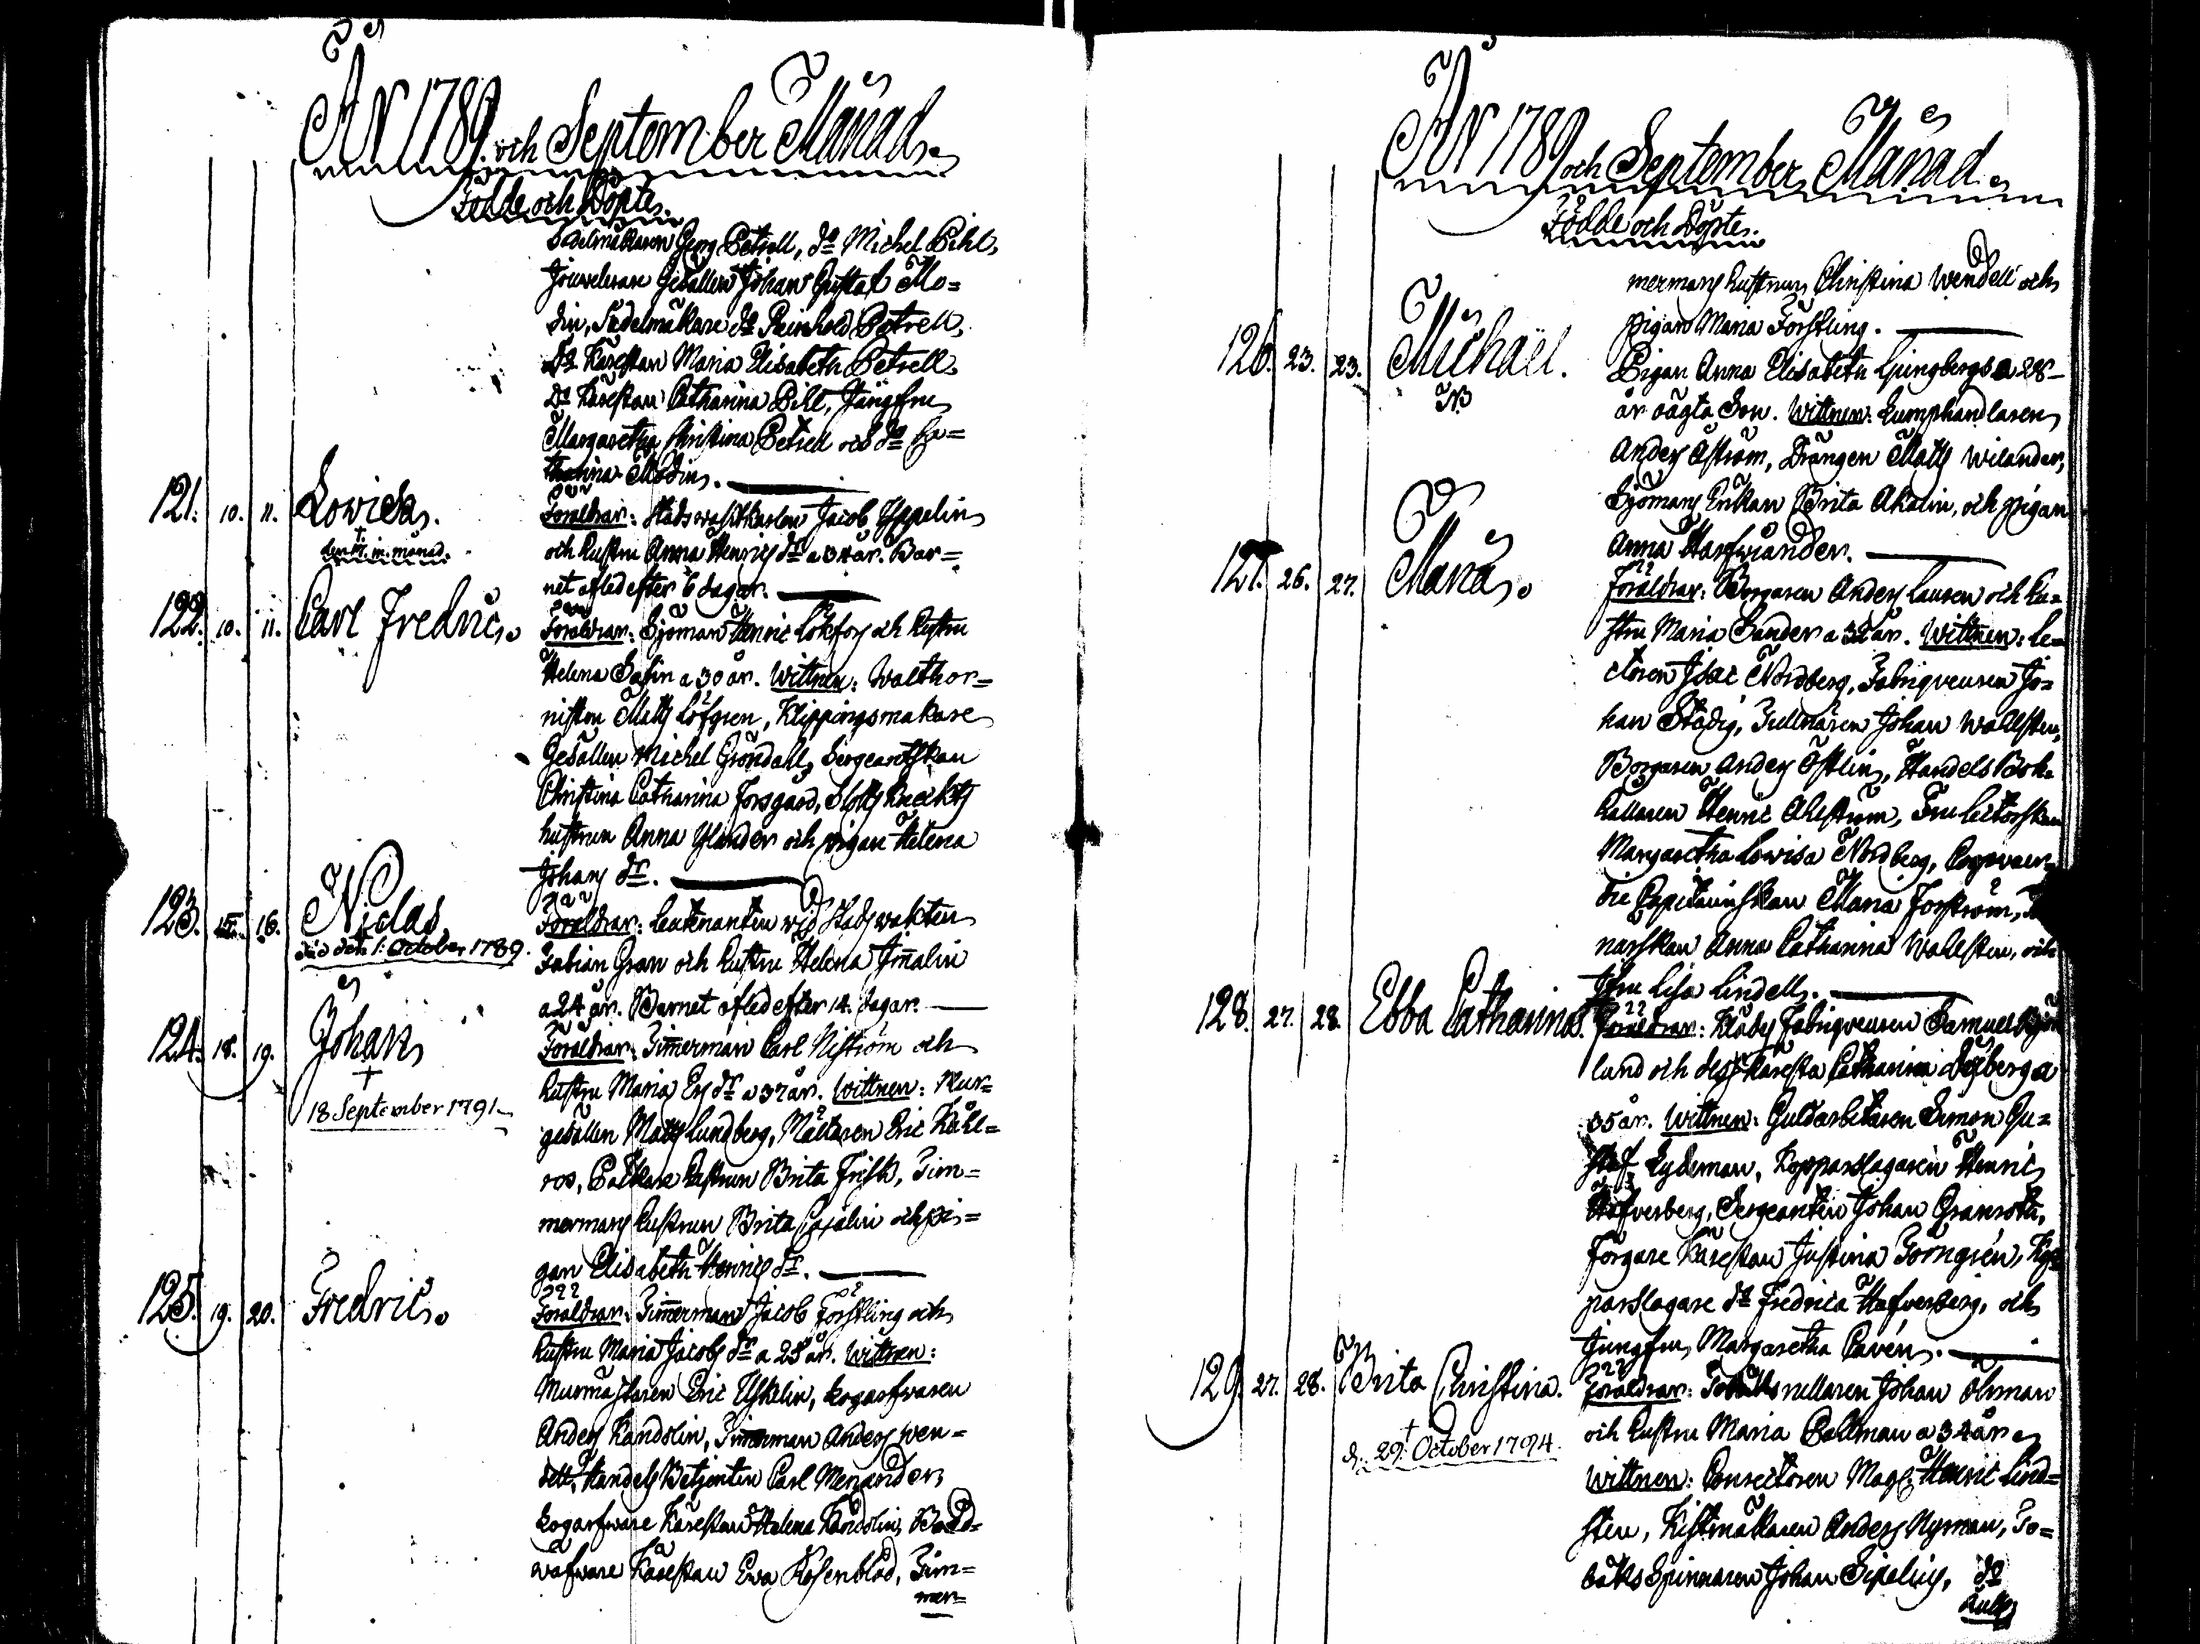 År 1789 och September Månad.
Födde och Döpte.
Sadelmakaren Georg Petrell, do Michel Pihl,
Jouvelerare Gesällen Johan Gustaf Mo=
din, Sadelmakare do Reinhold Petrell,
do Kärestan Maria Elisabeth Petrell,
do Kärestan Catharina Pihl, Jungfru
Margaretha Christina Petrell och do Ca=
tharina Modin.
121. 10. 11. Lovisa.
den 17. in. månad.
Föräldrar: Stadswaktkarlen Jacob
och hustru Anna Henricsdr a 34 år. Bar=
net afled efter 6 dagar.
122. 10. 11. Carl Fredric.
Föräldrar: Sjöman Henric Lökfors och hustru
Helena Safin a 30 år. Wittnen: Walthor=
nisten Matts Löfgren, Klippingsmakare
Gesällen Michel Gröndahl, Sergeantskan
Christina Catharina Forsgård, Slotts Knechts
hustrun Anna Ylander och pigan Helena
Johans dr.
123. 15. 16. Niclas.
Död den 1: October 1789.
Föräldrar: Leutenanten wid Stadswakten
Fabian Gran och hustru Helena Imalin
a 24 år. Barnet afled efter 14 dagar.
124. 18. 19. Johan.
†
18 September 1791
Föräldrar: Timmerman Carl Niström och
hustru Maria Ersdr a 37 år. Wittnen: Mur=
gesällen Matts Lundberg, Mältaren Eric Kåhl=
ros, hustrun Brita Frisk, Tim=
mermans hustrun Brita Cajalin och pi=
gan Elisabeth Henricsdr.
125. 19. 20. Fredric.
Föräldrar: Timmerman Jacob Förstling och
hustru Maria Jacobsdr a 28 år. Wittnen:
Murmästaren Eric Elskelin, Logarfwaren
Anders Kandolin, Timmerman Anders Wen=
dell, Handels Betjenten Carl Menander,
Logarfware Kärestan Helena Kandolin, Band=
wäfware Kärestan Eva Rosenblad, Tim=
mer=
År 1789 och September Månad.
Födde och Döpte.
mermans hustrun Christina Wendell och
pigan Maria Förstling.
126. 23. 23. Michaël.
NB
Pigan Anna Elisabeth Ljungbergs a 28
år oägta Son. Wittnen: Lumphandlaren
Anders Åström, Drängen Matts Wilander,
Sjömans Enkan Brita Akalin, och pigan
Anna Starfwiander.
127. 26. 27. Maria.
Föräldrar: Borgaren Anders Lauren och hu=
stru Maria Sander a 32 år. Wittnen: Le=
ctoren Isac Nordberg, Fabriqveuren Jo=
han Stadig, Tullnären Johan Wallsten,
Borgaren Anders Östlin, Handels Bok=
hållaren Henric Ahlström, Fru Lectorskan
Margaretha Lowisa Nordberg, Copwaer=
die Capitainskan Maria Forström,
närskan Anna Catharina Wallsten, och
Jfru Lisa Lindell.
128. 27. 28. Ebba Catharina.
Föräldrar: Klädes Fabriqveuren Samuel
lund och dess Käresta Catharina a
35 år. Wittnen: Guldarbetaren Simon Gu=
staf Lydeman, Kopparslagaren Henric
Hafverberg, Sergeanten Johan Granroth,
Förgare Kärestan Justina Törngrén, Kop=
parslagare do Fredrica Hafverberg, och
Jungfru Margaretha Pavén.
129. 27. 28. Brita Christina.
†
d. 29. October 1794.
Föräldrar: Johan Öhman
och hustru Maria Pallman a 34 år.
Wittnen: Consectoren Mag: Henric Lind=
sten, Kistmakaren Anders Nyman, To=
baks Spinnaren Johan Sipelius, do